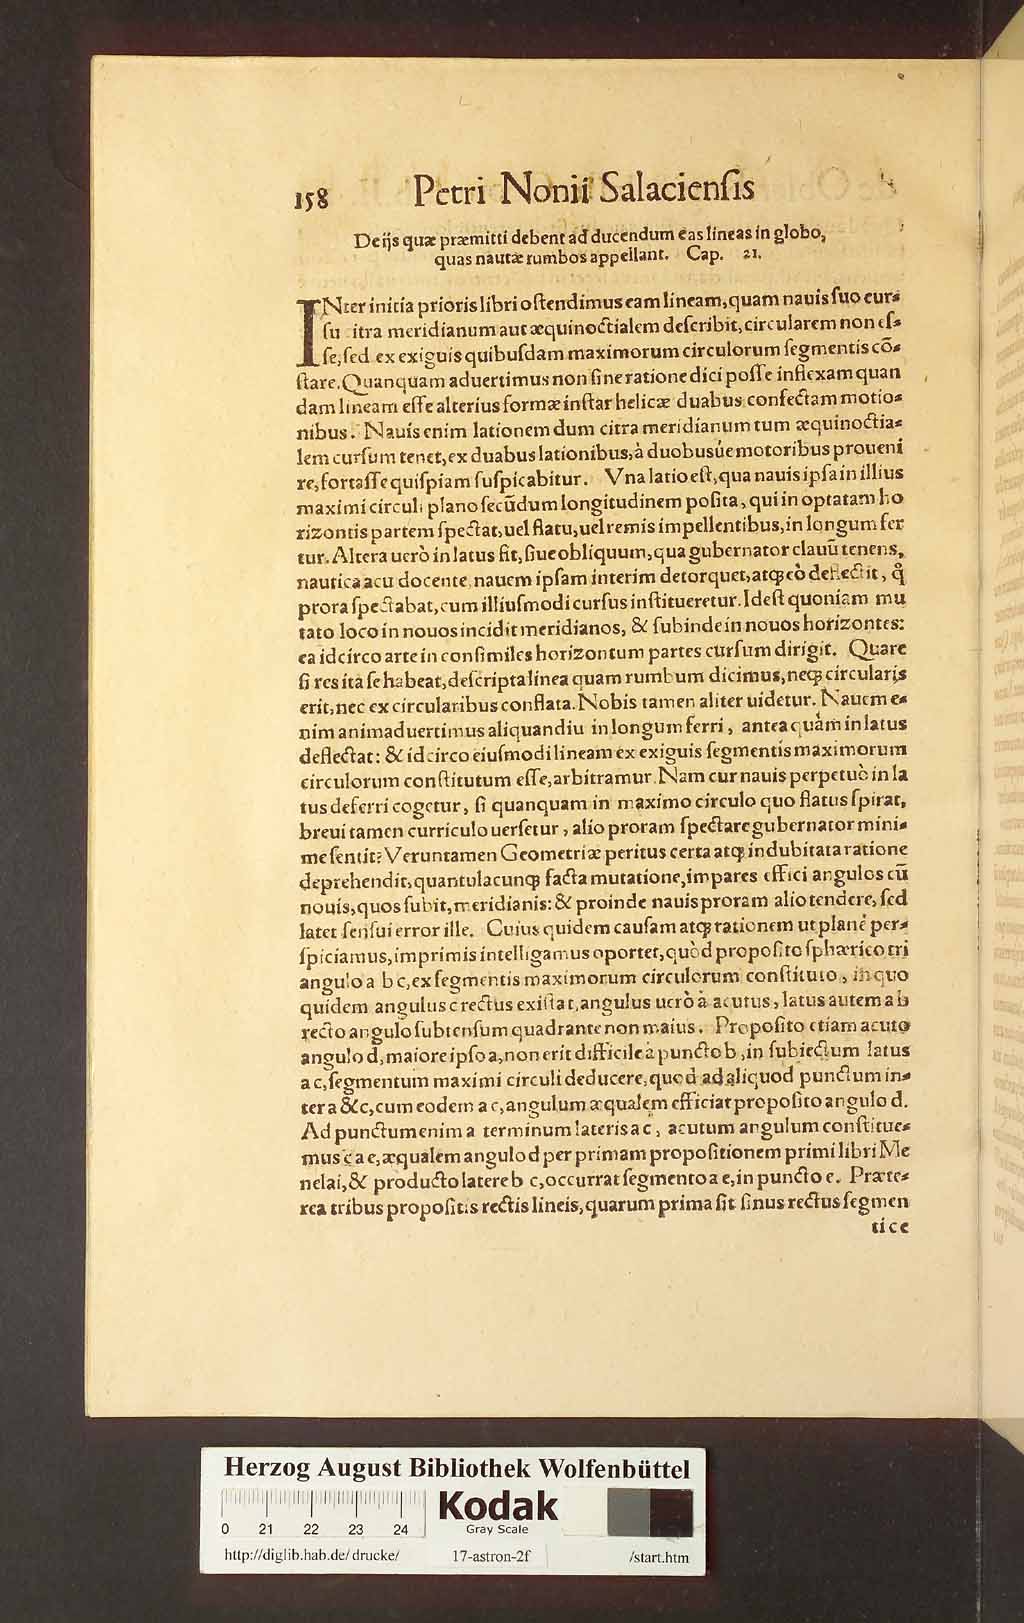 158 Petri Nonii Salaciensis
De ijs quæ præmitti debent ad ducendum eas lineas in globo,
quas nautæ rumbos appellant. Cap. 21.
INter initia prioris libri ostendimus eam lineam, quam nauis suo cur-
su citra meridianum aut æquinoctialem describit, circularem non es-
se, sed ex exiguis quibusdam maximorum circulorum segmentis cõ-
stare. Quanquam aduertimus non sine ratione dici posse inflexam quan
dam lineam esse alterius formæ instar helicæ duabus confectam motio-
nibus. Nauis enim lationem dum citra meridianum tum æquinoctia-
lem cursum tenet, ex duabus lationibus, à duobusúe motoribus proueni
re, fortasse quispiam suspicabitur. Vna latio est, qua nauis ipsa in illius
maximi circuli plano secũdum longitudinem posita, qui in optatam ho
rizontis partem spectat, uel flatu, uel remis impellentibus, in longum fer
tur. Altera uerò in latus fit, siue obliquum, qua gubernator clauũ tenens,
nautica acu docente, nauem ipsam interim detorquet, atq; eò deflectit, q̊
prora spectabat, cum illiusmodi cursus institueretur. Idest quoniam mu
tato loco in nouos incidit meridianos, & subinde in nouos horizontes:
ea idcirco arte in consimiles horizontum partes cursum dirigit. Quare
si res ita se habeat, descripta linea quam rumbum dicimus, neq; circularis
erit, nec ex circularibus conflata. Nobis tamen aliter uidetur. Nauem e-
nim animaduertimus aliquandiu in longum ferri, antea quàm in latus
deflectat: & idcirco eiusmodi lineam ex exiguis segmentis maximorum
circulorum constitutum esse, arbitramur. Nam cur nauis perpetuò in la
tus deferri cogetur, si quanquam in maximo circulo quo flatus spirat,
breui tamen curriculo uersetur, alio proram spectare gubernator mini-
me sentit? Veruntamen Geometriæ peritus certa atq; indubitata ratione
deprehendit, quantulacunq; facta mutatione, impares effici angulos cũ
nouis, quos subit, meridianis: & proinde nauis proram alio tendere, sed
latet sensui error ille. Cuius quidem causam atq; rationem ut planè per-
spiciamus, imprimis intelligamus oportet, quòd proposito sphærico tri
angulo a b c, ex segmentis maximorum circulorum constituto, in quo
quidem angulus c rectus existat, angulus uerò à acutus, latus autem a b
recto angulo subtensum quadrante non maius. Proposito etiam acuto
angulo d, maiore ipso a, non erit difficile à puncto b, in subiectum latus
a c, segmentum maximi circuli deducere, quod ad aliquod punctum in-
ter a & c, cum eodem a c, angulum æqualem efficiat proposito angulo d.
Ad punctum enim a terminum lateris a c, acutum angulum constitue-
mus c a e, æqualem angulo d per primam propositionem primi libri Me
nelai, & producto latere b c, occurrat segmento a e, in puncto e. Præte-
rea tribus propositis rectis lineis, quarum prima sit sinus rectus segmen
ti c e
Herzog August Bibliothek Wolfenbüttel
0 21 22 23 24
Kodak
Gray Scale
http://diglib.hab.de/drucke/ 17-astron-2f /start.htm